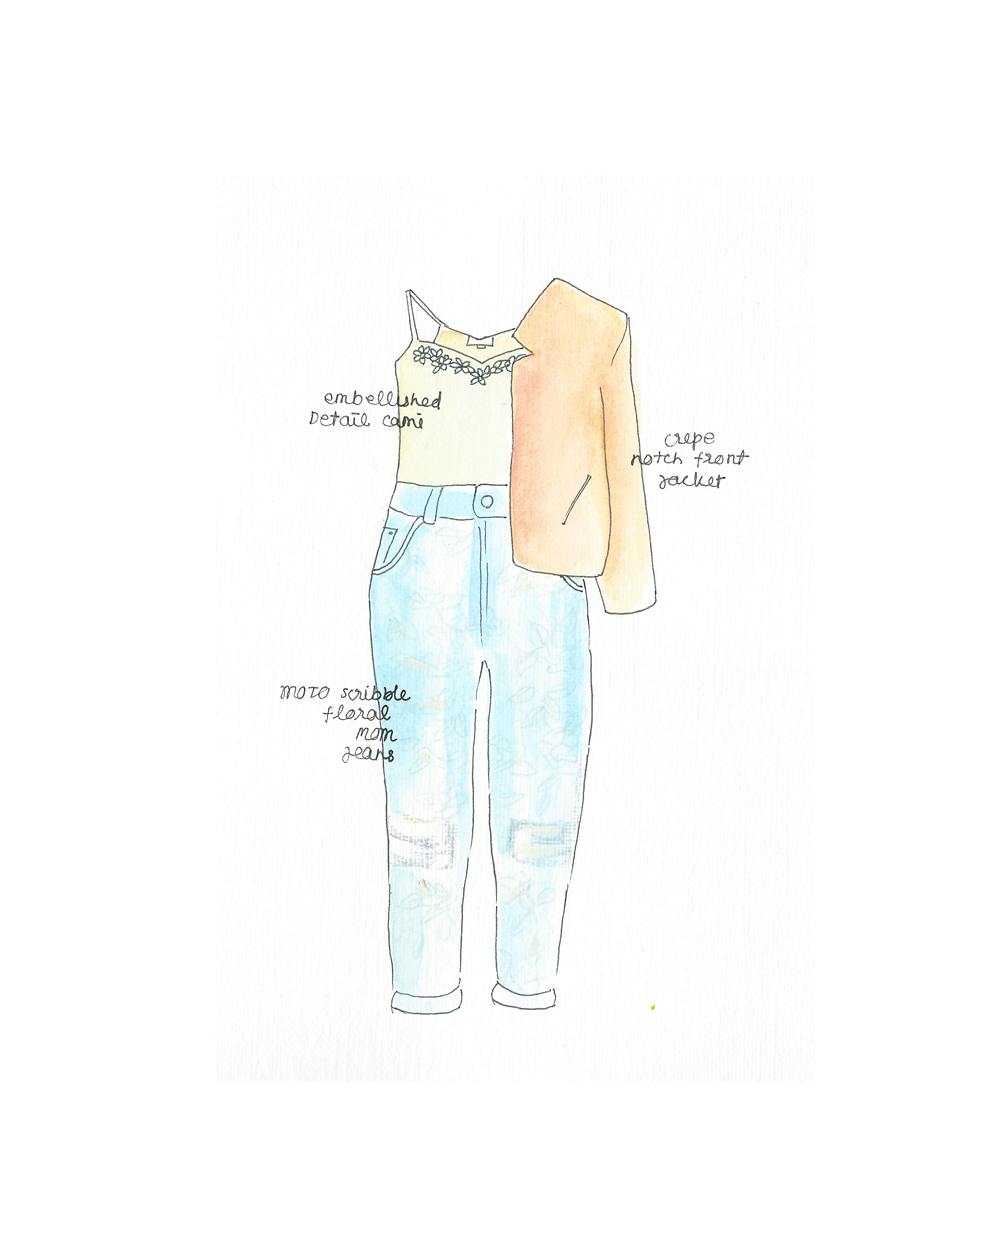 embellished
Detail cami
crepe
notch front
jacket
MOTO scribble
floral
mom
jeans